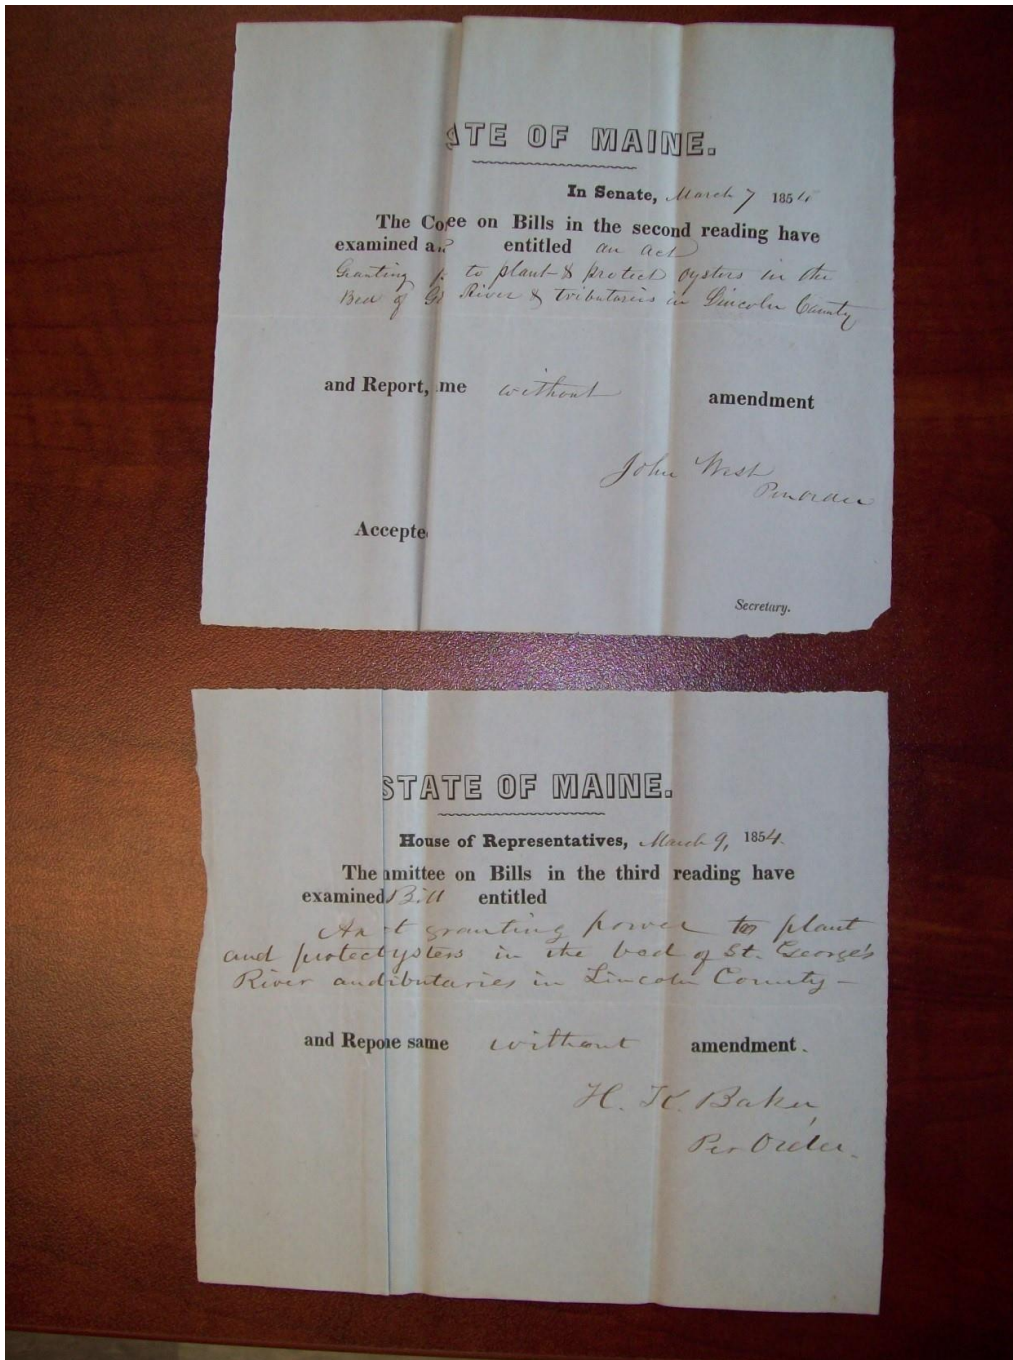 ATE OF MAINE.
In Senate, March 7 1854
The Co ee on Bills in the second reading have
examined a entitled an act
Granting to plant & protect oysters in the
Bed of River & tributaries in Lincoln County
and Report, me without amendment
John West
Per order
Accepte
Secretary.
STATE OF MAINE.
House of Representatives, March 9, 1854.
The mmittee on Bills in the third reading have
examined Bill entitled
An t granting power to plant
and protect ysters in the bed of St. George's
River and ibutaries in Lincoln County —
and Repo e same without amendment.
H. K. Baker,
Per Order.